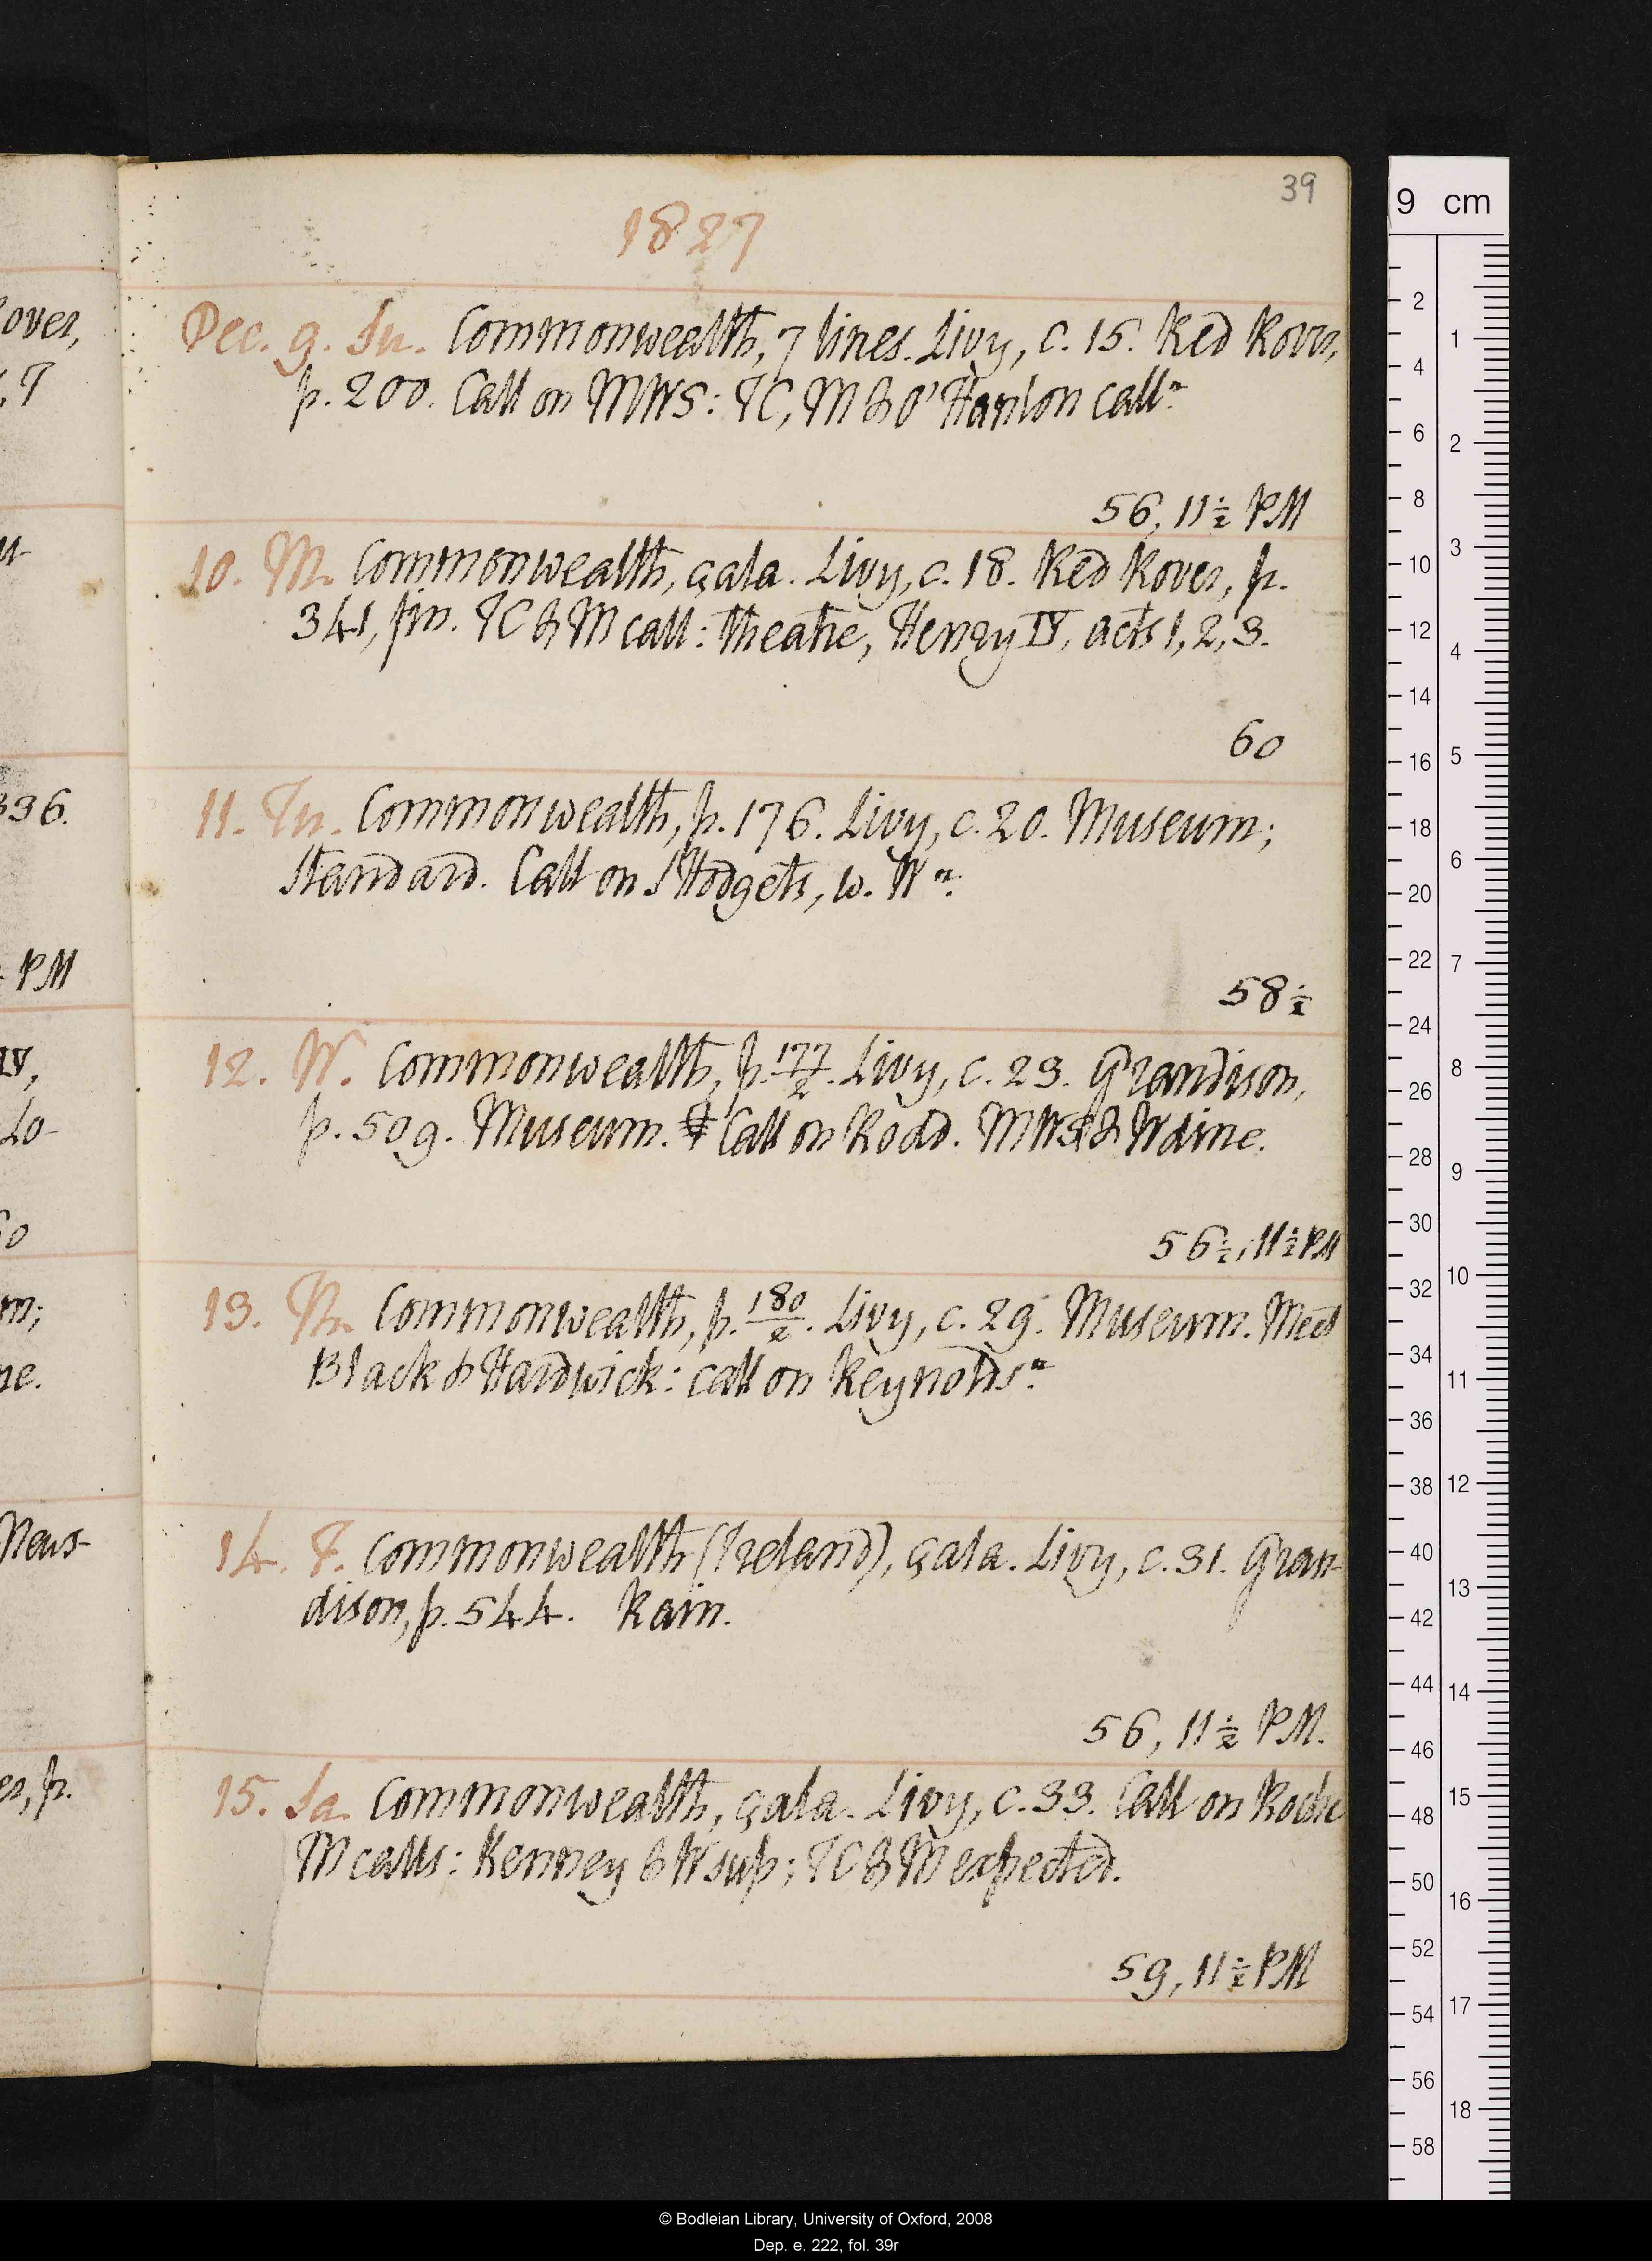 39
1827
Dec. 9. Su. Commonwealth, 7 lines. Livy, c. 15. Red Rover,
p. 200. Call on MWS: TC, M & O'Hanlon call n.
56, 11½ PM
10. M. Commonwealth, çala. Livy, c. 18. Red Rover, p.
341, fin. TC & M call: theatre, Henry IV, acts 1, 2, 3.
60
11. Tu. Commonwealth, p. 176. Livy, c. 20. Museum;
Standard. Call on J Hodgets, w. W n.
58½
12. W. Commonwealth, p. 177/2. Livy, c. 23. Grandison,
p. 509. Museum. Call on Rodd. MWS & W dine.
56½, 11½ PM
13. Th. Commonwealth, p. 180/2. Livy, c. 29. Museum. Meet
Black & Hardwick: call on Reynolds n.
14. F. Commonwealth (Ireland), çala. Livy, c. 31. Gran-
dison, p. 544. Rain.
56, 11½ PM.
15. Sa. Commonwealth, çala. Livy, c. 33. Call on
M calls: Kenney & W sup; TC & M expected.
59, 11½ PM
over,
, T
u-
336.
PM
IV,
Lo-
60
m;
ne.
News-
er, p.
9 cm
2
4
6
8
10
12
14
16
18
20
22
24
26
28
30
32
34
36
38
40
42
44
46
48
50
52
54
56
58
1
2
3
4
5
6
7
8
9
10
11
12
13
14
15
16
17
18
© Bodleian Library, University of Oxford, 2008
Dep. e. 222, fol. 39r